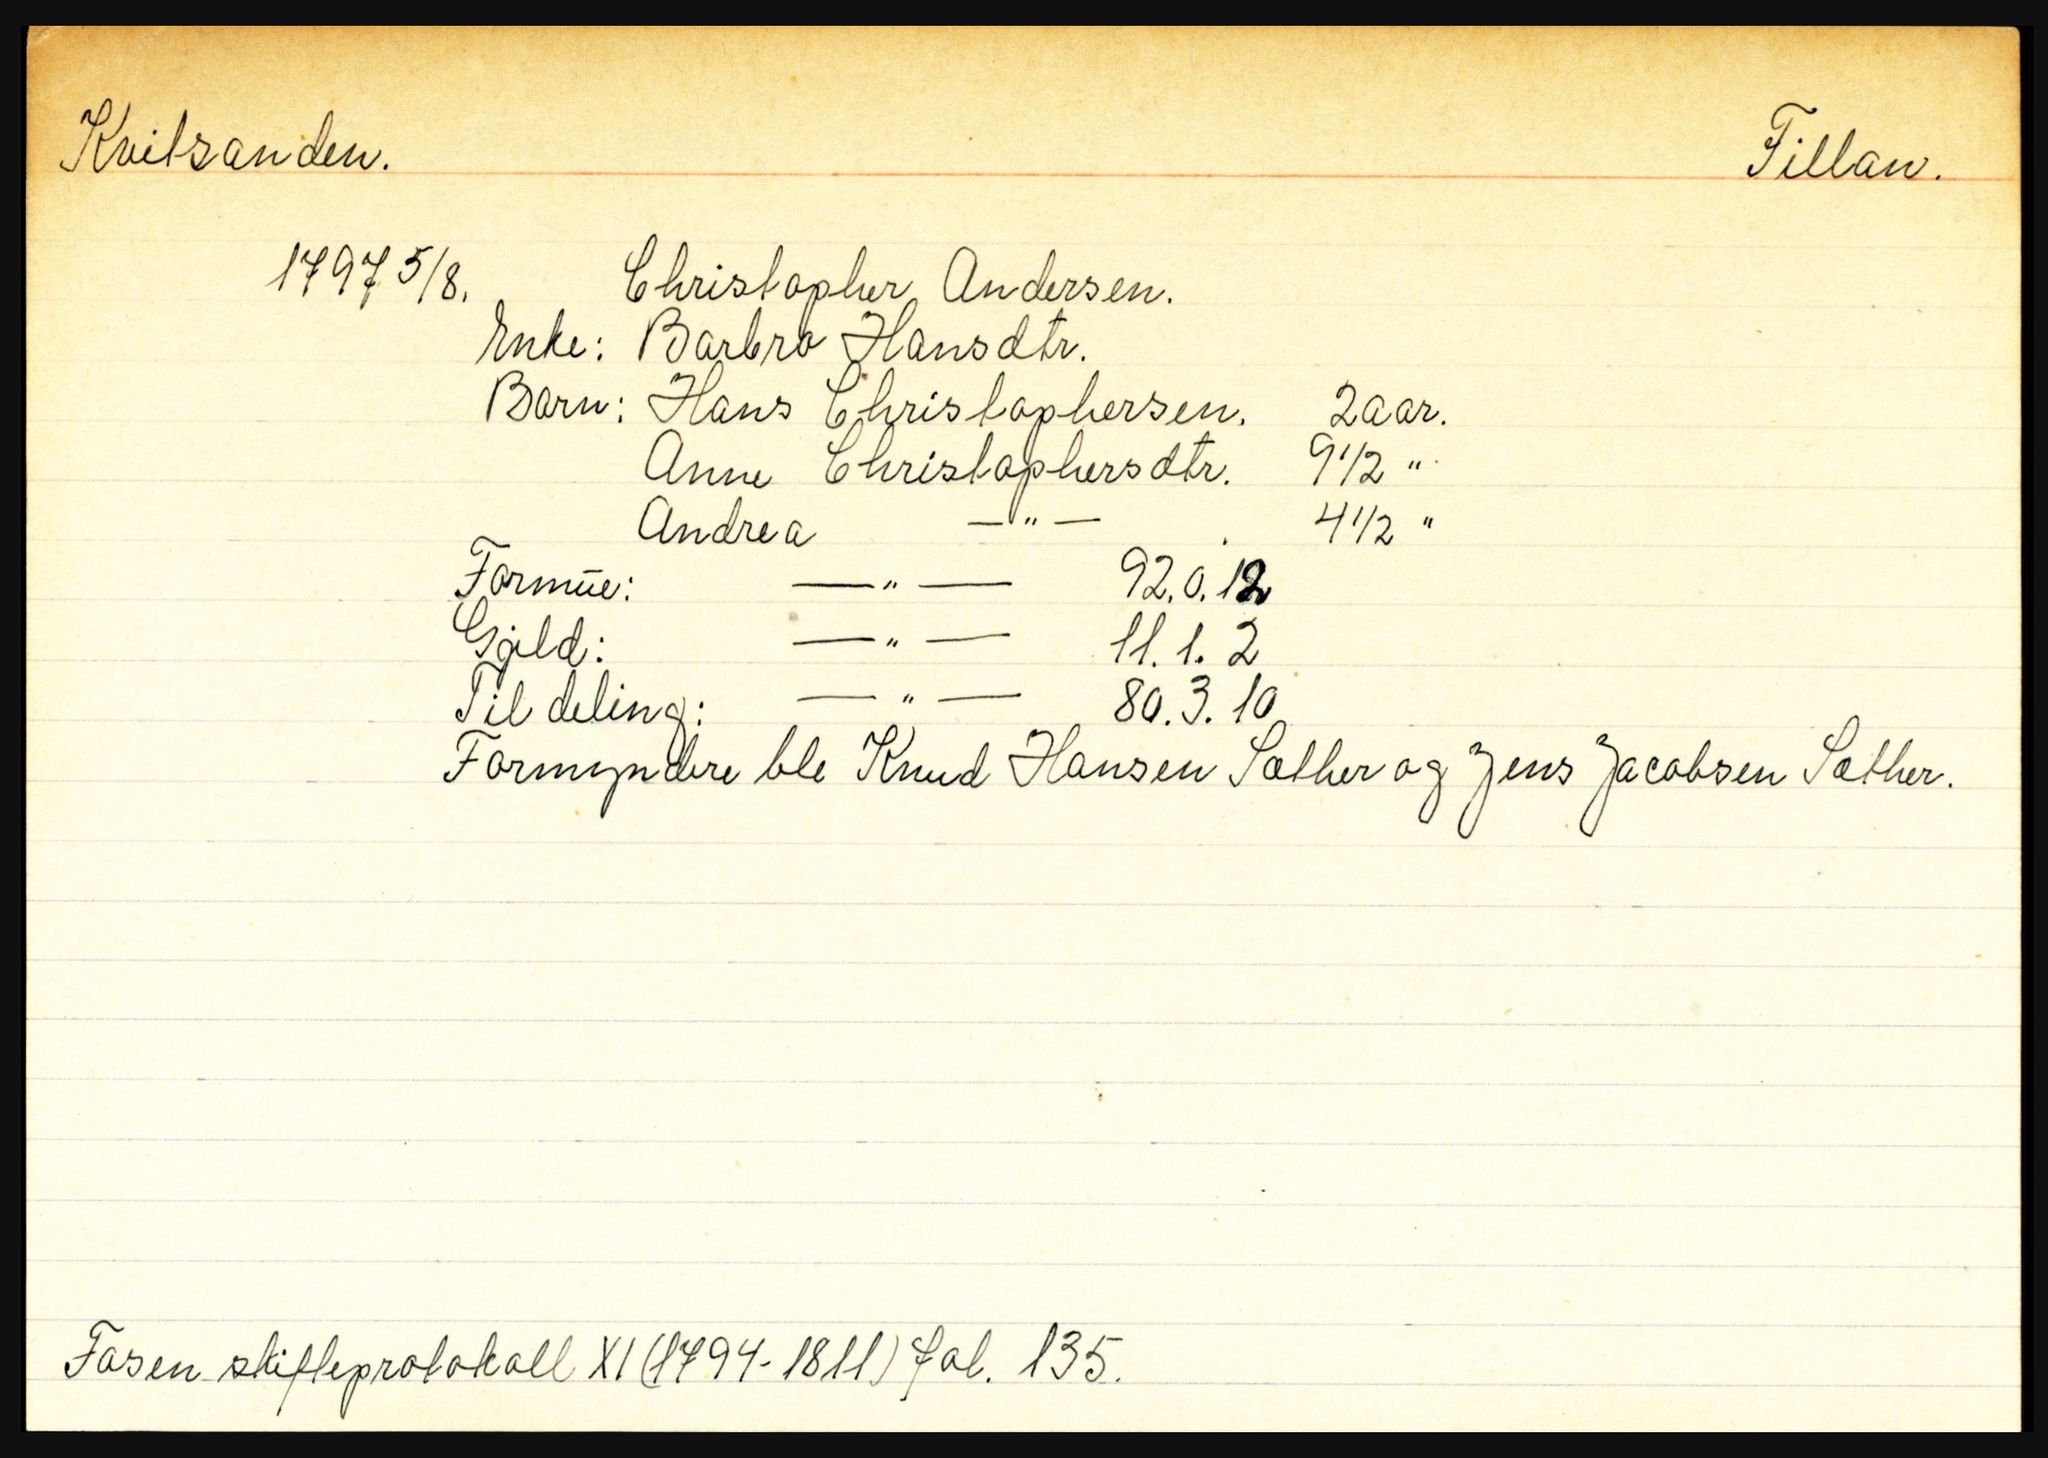 Kvitsanden. Fillan.
1797 5/8. Christopher Andersen.
Enke: Barbro Hansdtr.
Barn: Hans Christophersen. 2 aar.
Anne Christophersdtr. 9 1/2 "
Andrea —"— . 4 1/2 "
Formue: —"— 92.0.12
Gjeld: —"— 11.1.2
Til deling: —"— 80.3.10
Formyndere ble Knud Hansen Sæther og Jens Jacobsen Sæther.
Fosen skifteprotokoll XI (1794-1811) fol. 135.